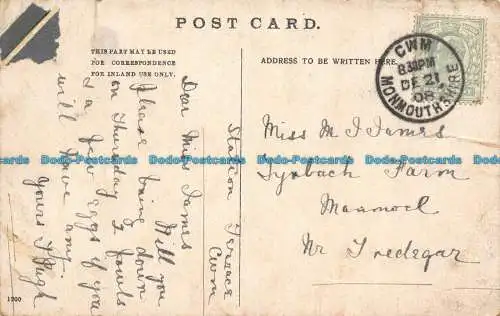 POST CARD.
THIS PART MAY BE USED
FOR CORRESPONDENCE
FOR INLAND USE ONLY.
ADDRESS TO BE WRITTEN HERE.
CWM
8.30PM
DE 21
08
MONMOUTHSHIRE
Station Terrace
Cwm
Dear Miss James
Will you
Please bring down
on Thursday 2 fowls
& a few eggs if you
will have any.
yours T Pugh
Miss M J James
Farm
Manmoel
Nr Tredegar
1200
Dodo-Postcards Dodo-Postcards Dodo-Postcards Dodo-Postcards Dodo-Postcards